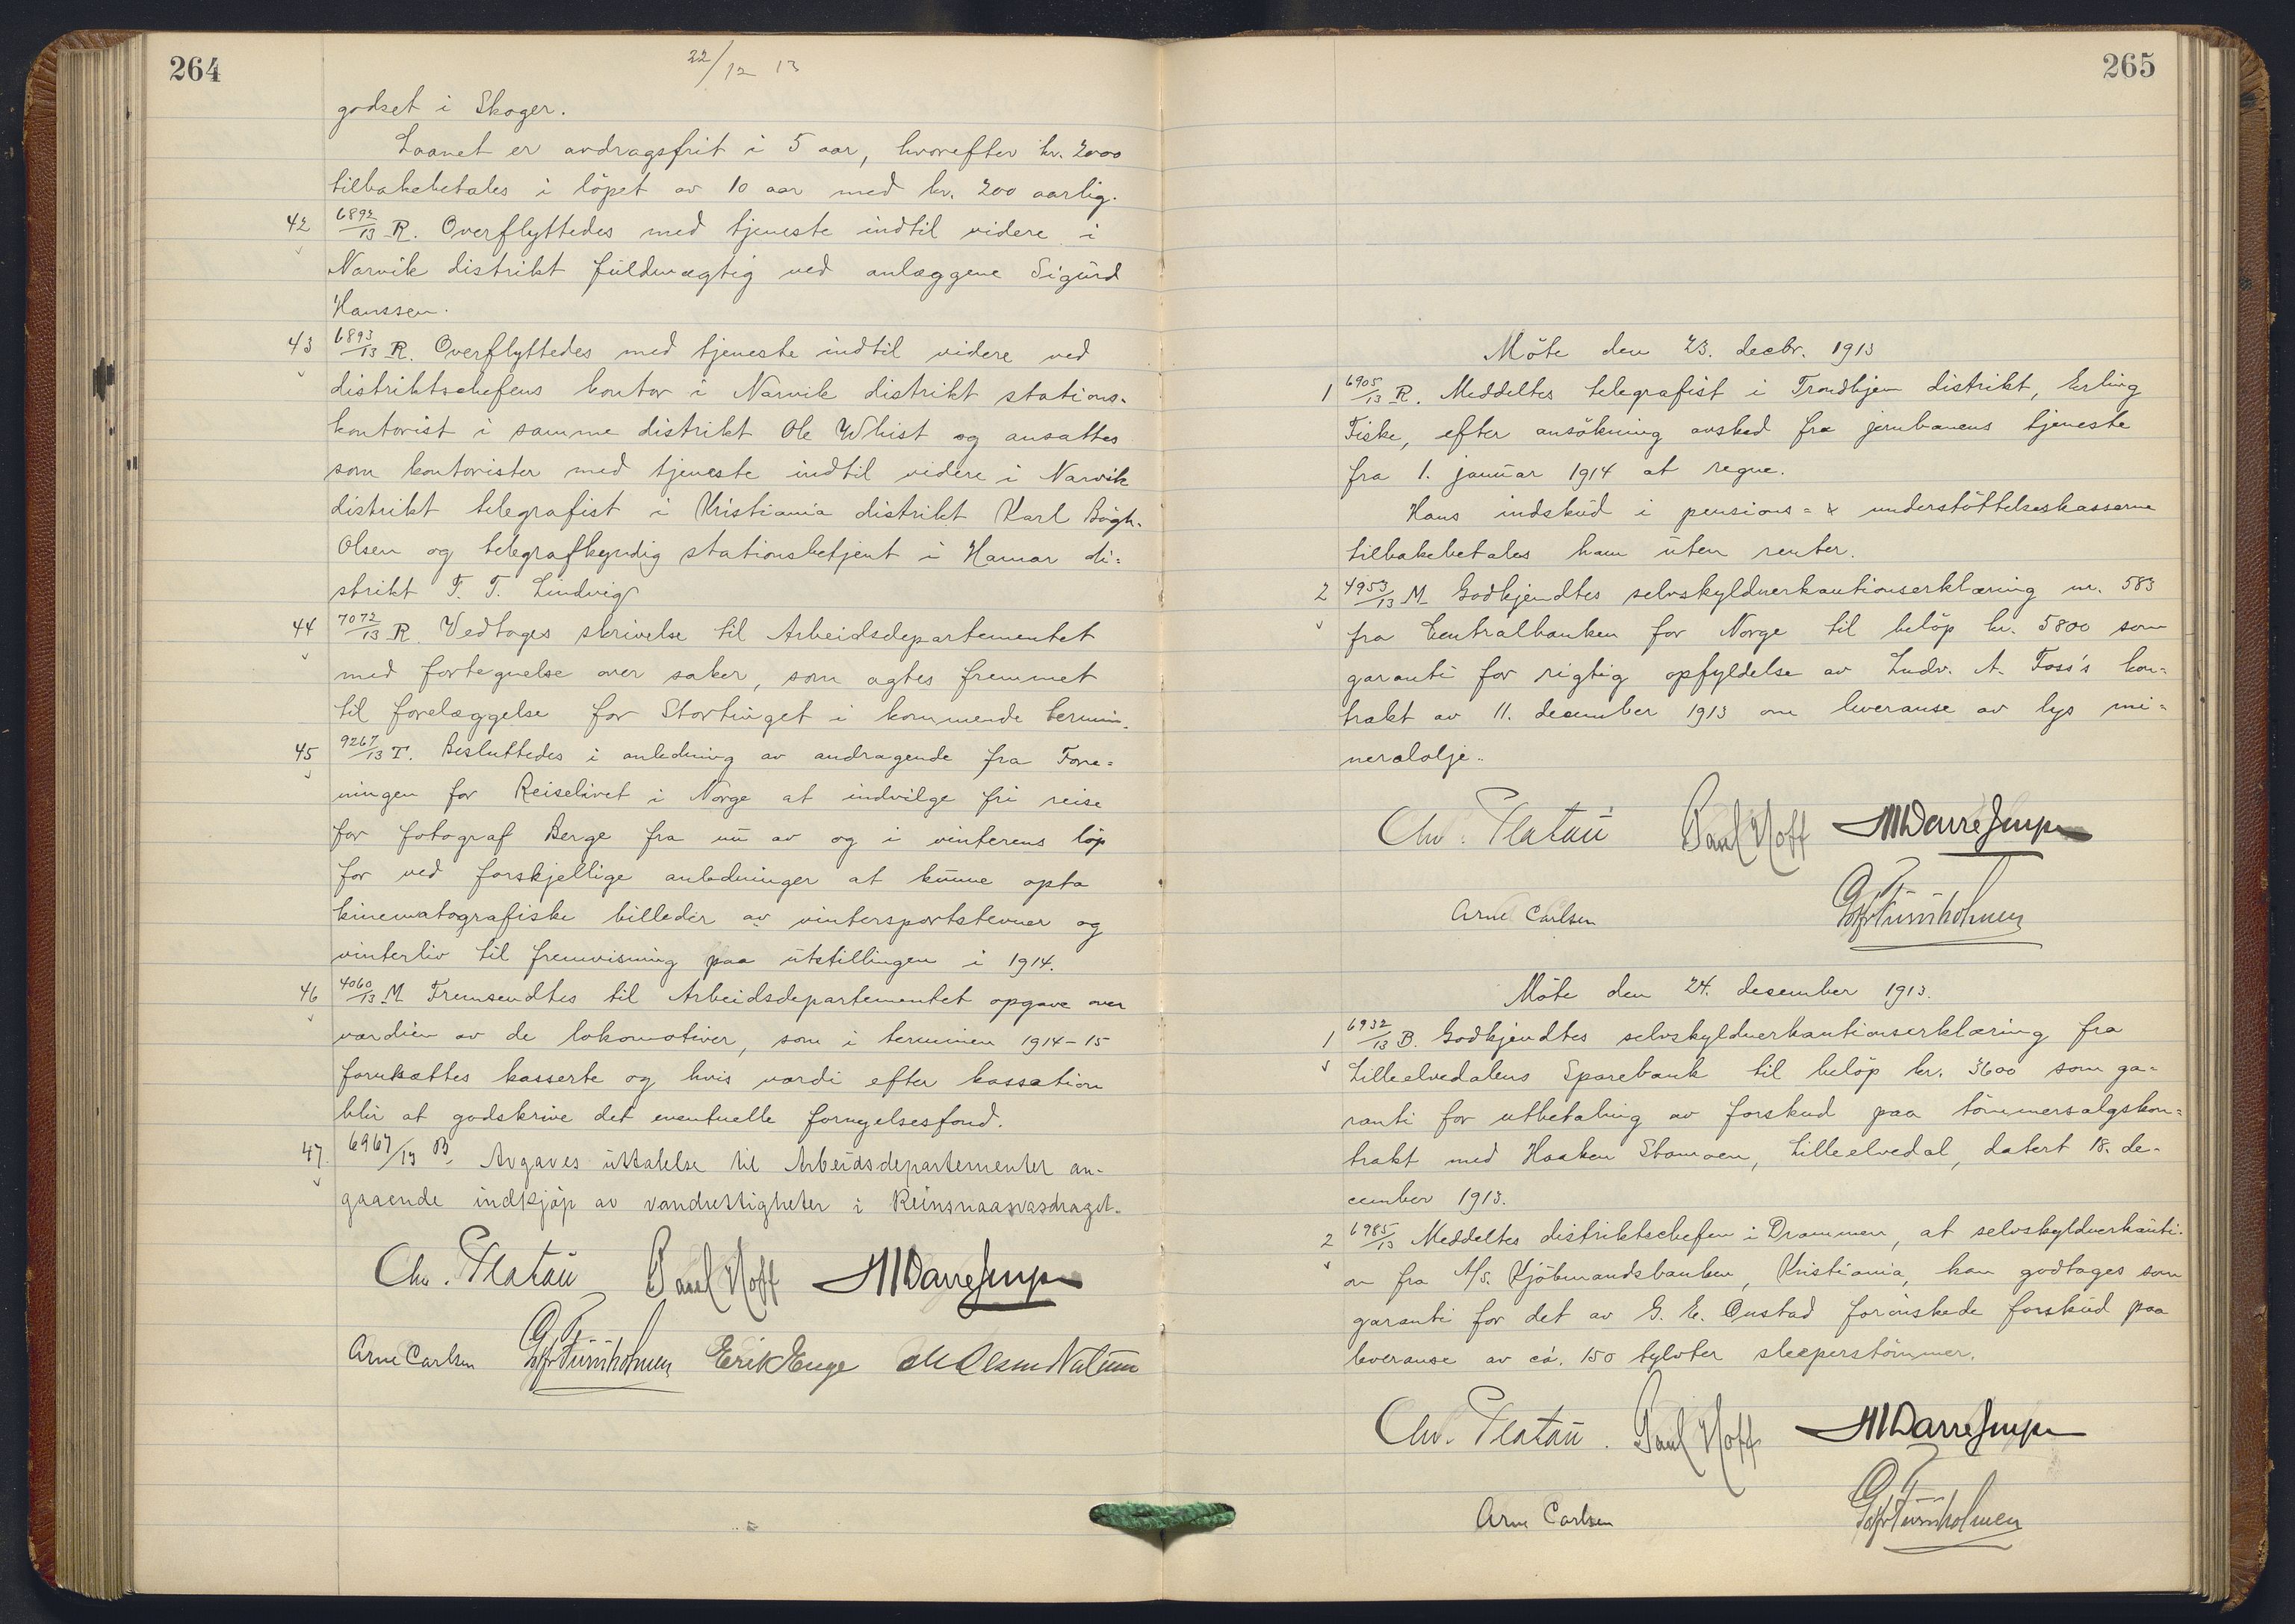 264
22/12 13
godset i Skoger.
Laanet er avdragsfrit i 5 aar, hvorefter kr. 2000
tilbakebetales i löpet av 10 aar med kr. 200 aarlig.
42 6892/13 R. Overflyttedes med tjeneste indtil videre i
Narvik distrikt fuldmægtig ved anlæggene Sigurd
Hanssen.
43 6893/13 R. Overflyttedes med tjeneste indtil videre ved
distriktschefens kontor i Narvik distrikt stations-
kontorist i samme distrikt Ole Whist og ansattes
som kontorister med tjeneste indtil videre i Narvik
distrikt telegrafist i Kristiania distrikt Karl Bögh-
Olsen og telegrafkyndig stationsbetjent i Hamar di=
strikt T. T. Lindvig
44 7072/13 R. Vedtages skrivelse til Arbeidsdepartementet
med fortegnelse over saker, som agtes fremmet
til forelæggelse for Stortinget i kommende termin.
45 9267/13 T. Besluttedes i anledning av andragende fra Fore=
ningen for Reiselivet i Norge at indvilge fri reise
for fotograf Berge fra nu av og i vinterens löp
for ved forskjellige anledninger at kunne opta
kinematografiske billeder av vintersportstevner og
vinterliv til fremvisning paa utstillingen i 1914.
46 4060/13 M Fremsendtes til Arbeidsdepartementet opgave over
værdien av de lokomotiver, som i terminen 1914-15
forutsættes kasserte og hvis værdi efter kassation
blir at godskrive det eventuelle fornyelsesfond.
47. 6967/13 B. Avgaves uttalelse til Arbeidsdepartementet an-
gaaende indkjöp av vandrettigheter i Reinsnaasvasdraget.
Chr. Platou Paul Hoff MWarre Jensen
Arne Carlsen Gulbr. Furuholmen Erik Enge
265
Möte den 23. decbr. 1913
1 6905/13 R. Meddeltes telegrafist i Trondhjem distrikt, Erling
Fiske, efter ansökning avsked fra jernbanens tjeneste
fra 1. januar 1914 at regne.
Hans indskud i pensions= & understöttelseskasserne
tilbakebetales ham uten renter.
2 4953/13 M Godkjendtes selvskyldnerkautionserklæring nr. 583
fra Centralbanken for Norge til belöp kr. 5800 som
garanti for rigtig opfyldelse av Ludv. A. Foss's kon=
trakt av 11. december 1913 om leveranse av lys mi=
neralolje.
Chr. Platou Paul Hoff MWarre Jensen
Arne Carlsen Gulbr. Furuholmen
Möte den 24. desember 1913.
1 6932/13 B. Godkjendtes selvskyldnerkautionserklæring fra
Lilleelvedalens Sparebank til belöp kr. 3600 som ga=
ranti for utbetaling av forskud paa tömmersalgskon=
trakt med Haaken Stamoen, Lilleelvedal, datert 18. de-
cember 1913.
2 6985/13 Meddeltes distriktschefen i Drammen, at selvskyldnerkauti-
on fra A/S. Kjöbmandsbanken, Kristiania, kan godtages som
garanti for det av G. E. Onstad forönskede forskud paa
leveranse av ca. 150 tylvter sleeperstömmer.
Chr. Platou. Paul Hoff MWarre Jensen
Arne Carlsen Gulbr. Furuholmen